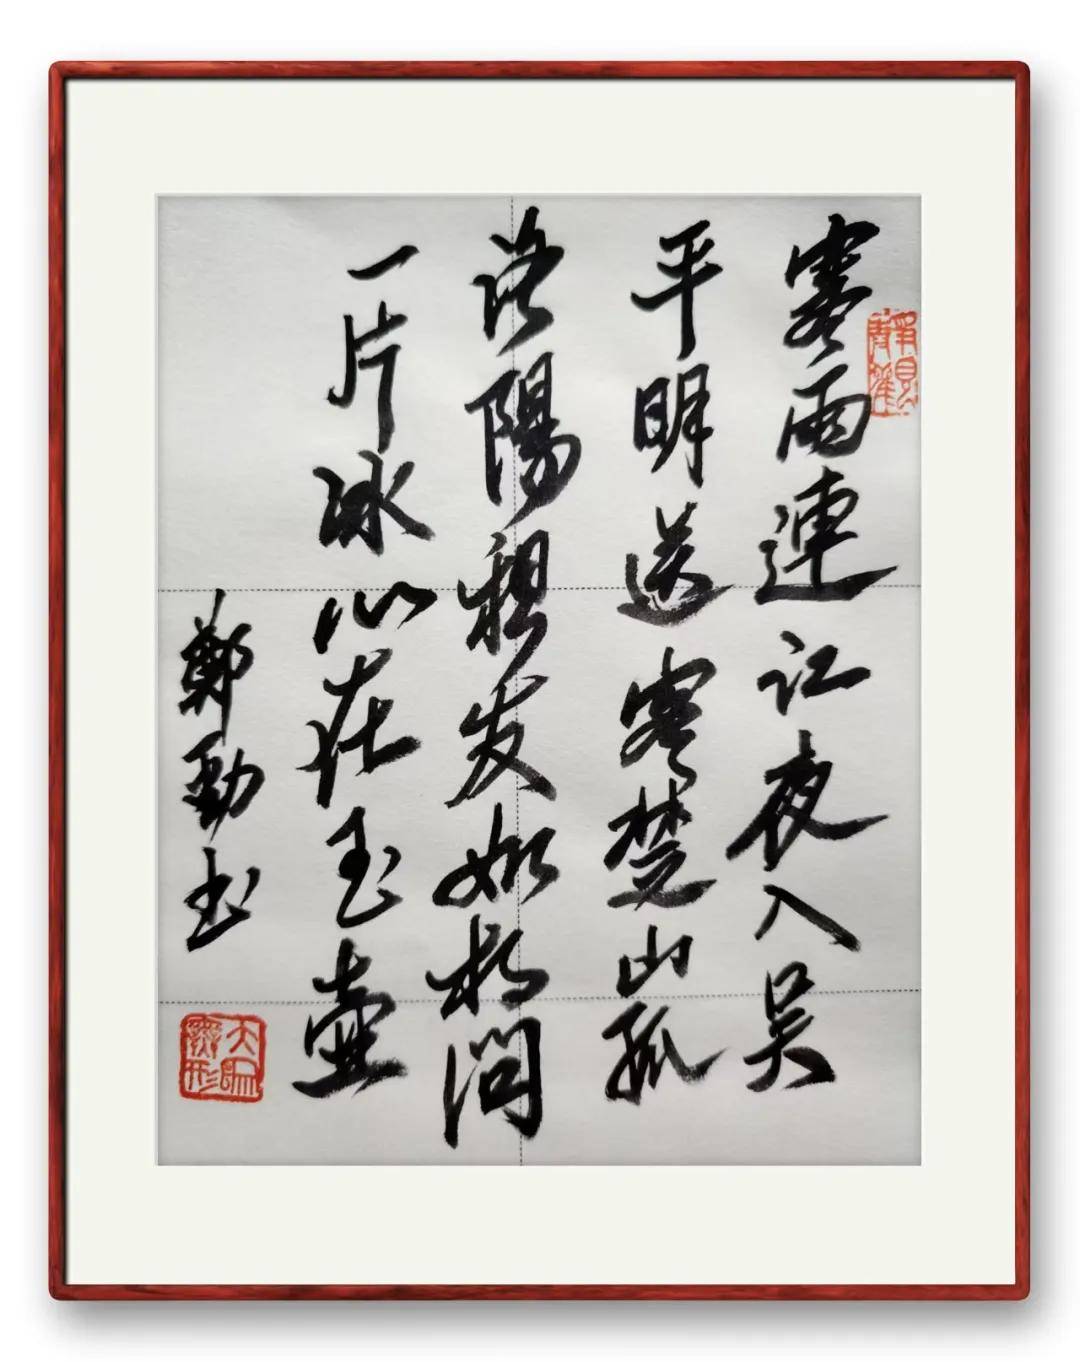 寒雨連江夜入吴
平明送客楚山孤
洛陽親友如相問
一片冰心在玉壺
鄭勁书